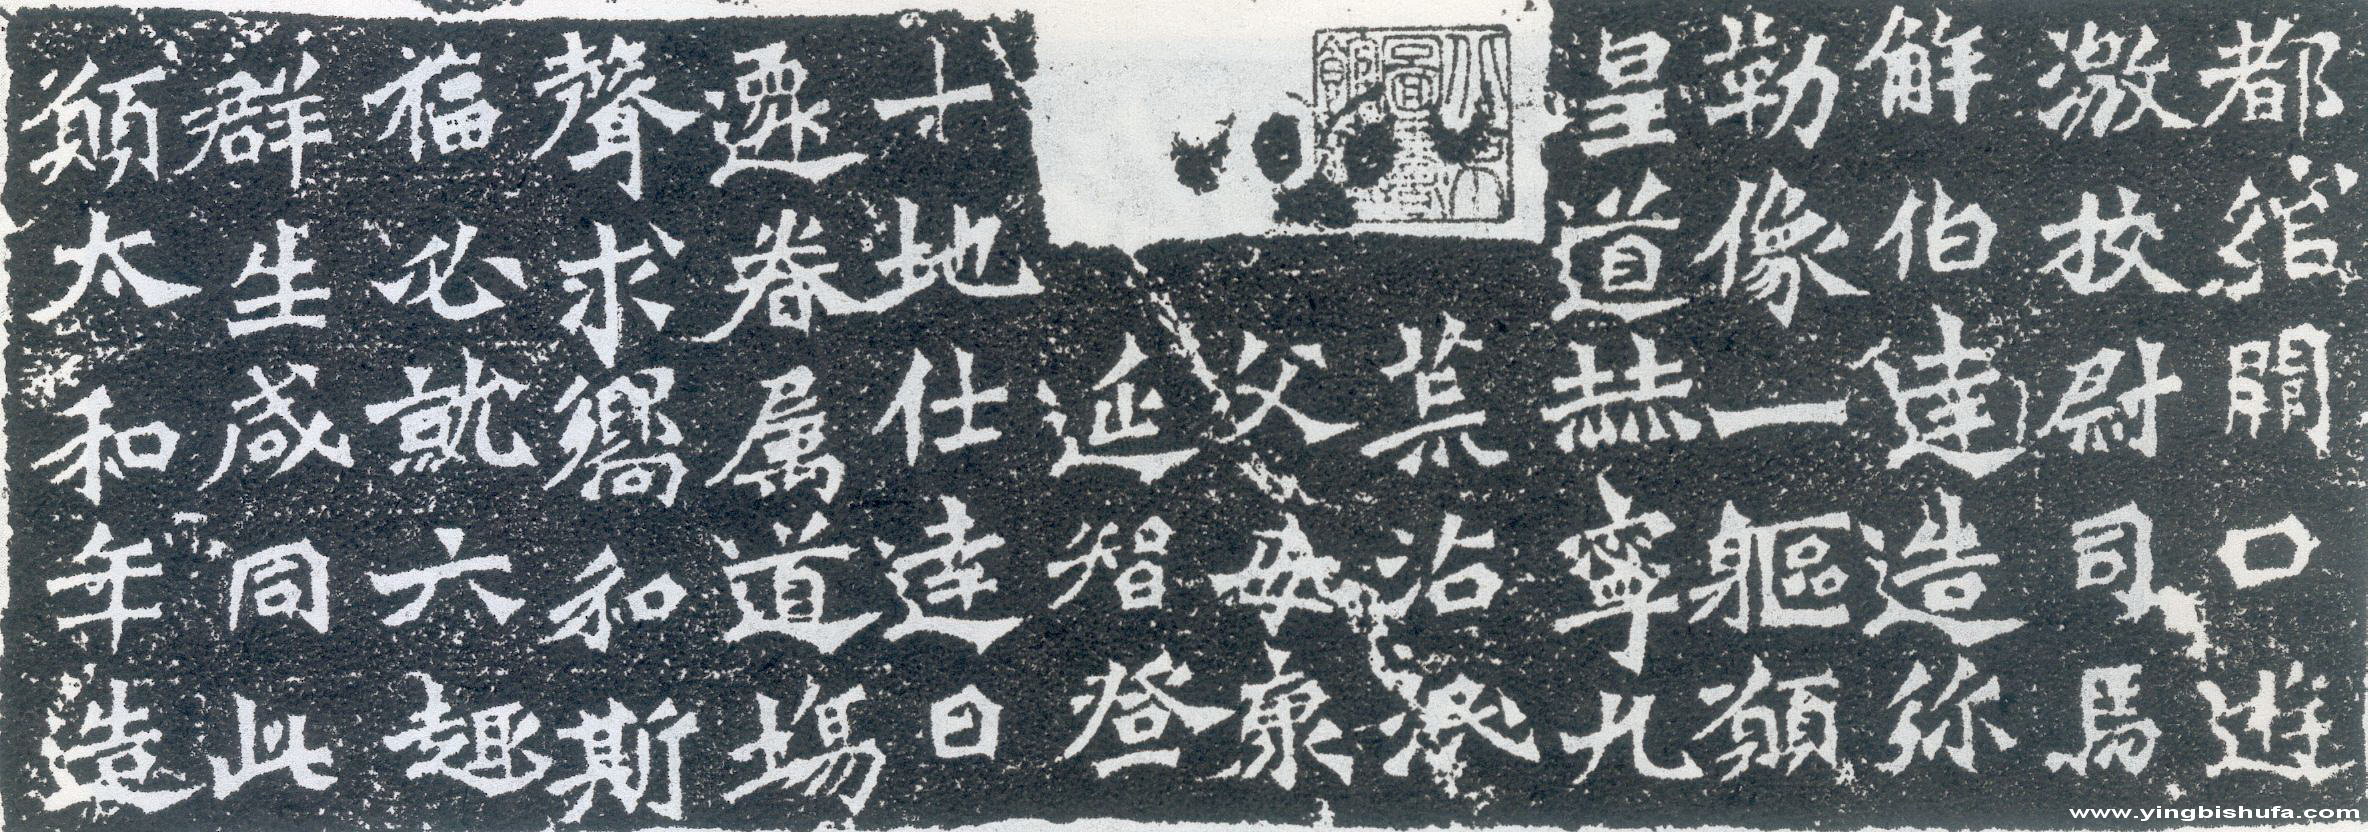 都綰闕口遊
激校尉司馬
解伯達造弥
勒像一軀願
皇道赫寧九
荒沾泯
父母康
延智登
十地仕達日
遷眷属道場
聲求嚮和斯
福必就六趣
群生咸同此
願太和年造
www.yingbishufa.com